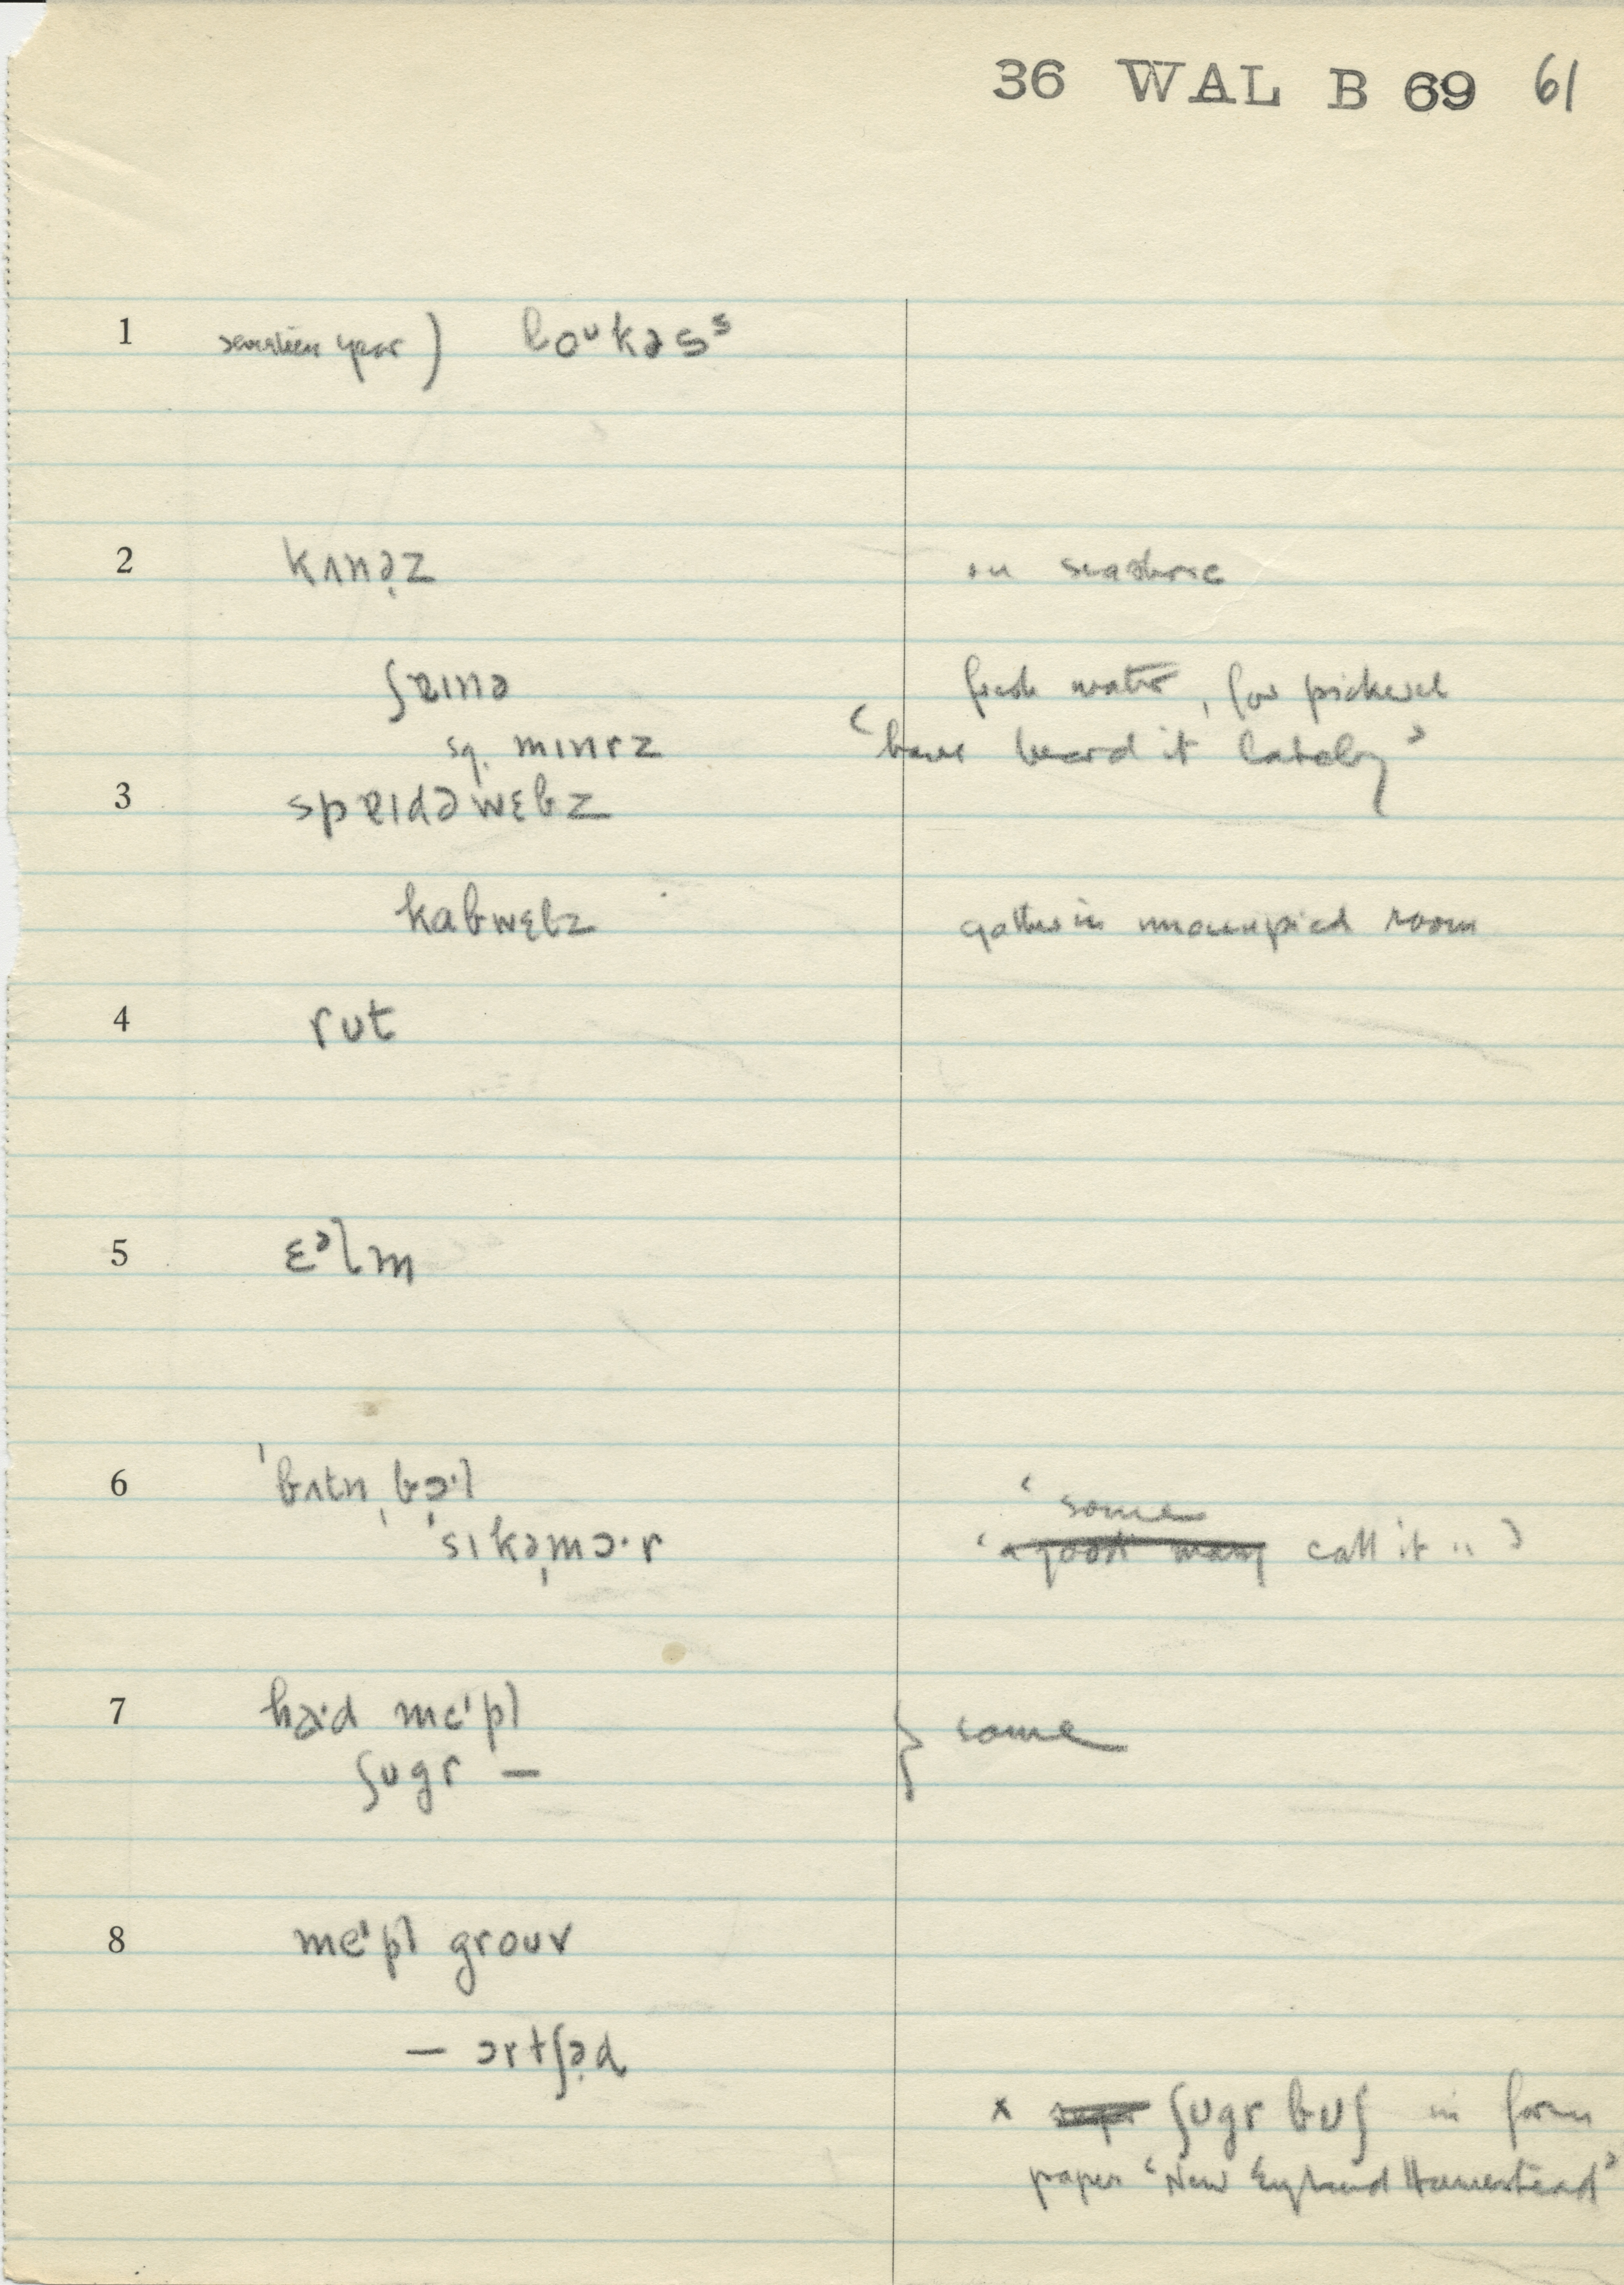 36 WAL B 69 61
1 seventeen year) loᵘkəsˢ
2 kʌnə̣z on seashore
ʃɐɪnə fresh water, for pickerel
sq. mɪnrz ‘have heard it lately’
3 spɐɪdəwɛbz
kabwɛbz gather in unoccupied room
4 rut
5 ɛᵊlm
6 ˈbʌtnˌbɔ̣·l ‘some
ˈsɪkəˌmɔ·r ‘a good many call it "’
7 ha·d meˈpl } same
ʃugr —
8 meˈpl grouv
— ɔrtʃə̣d
x ʃugr buʃ in farm
paper ‘New England Homestead’